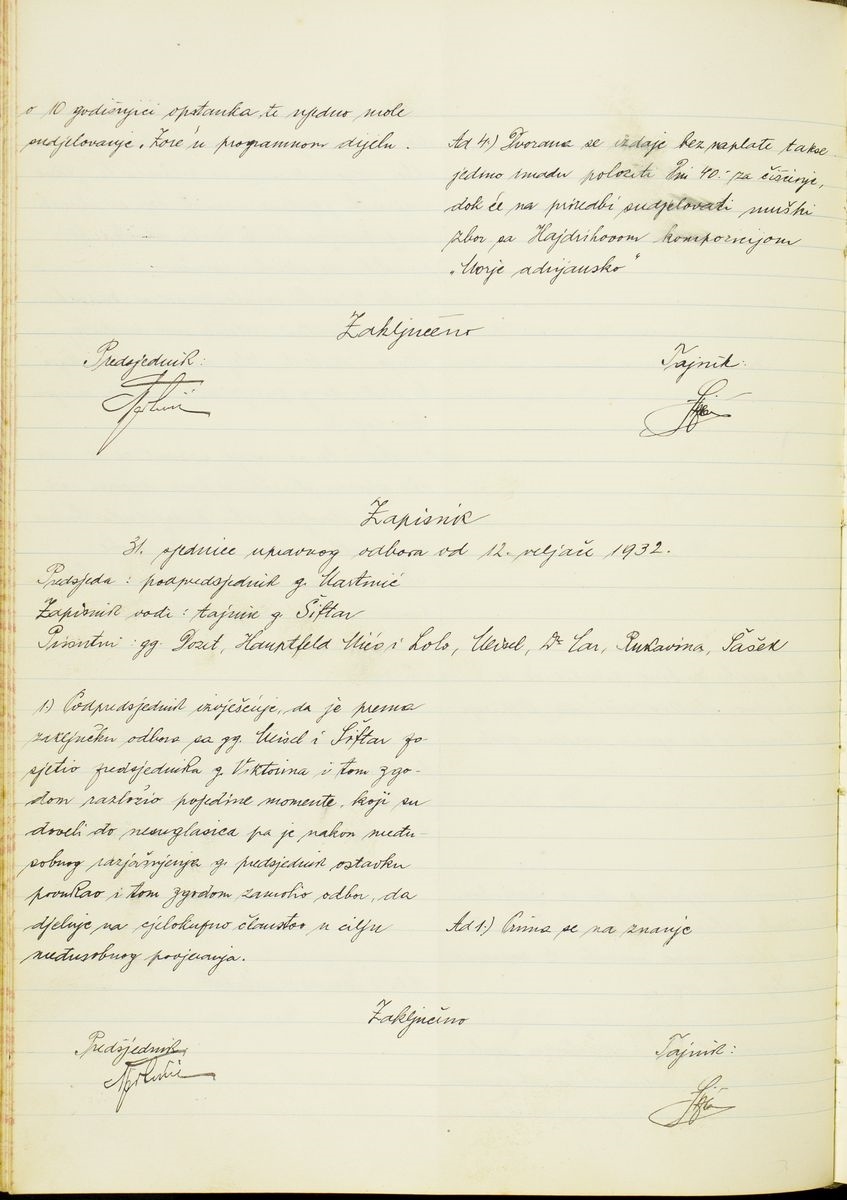 o 10 godišnjici opstanka, te ujedno mole
sudjelovanje „Zore" u programnom dijelu.
Ad 4.) Dvorana se izdaje bez naplate takse
jedino imadu položiti Din 40.- za čišćenje,
dok će na priredbi sudjelovati muški
zbor sa Hajdrihovom kompozicijom
„Morje adrijansko"
Zaključeno
Predsjednik:
Tajnik:
Zapisnik
31. sjednice upravnog odbora od 12. veljače 1932.
Predsjeda: podpredsjednik g. Martinić
Zapisnik vodi: tajnik g. Šiftar
Prisutni: gg. Dozet, Hauptfeld Mićo i Lolo, Meisel, Dr Car, Rukavina, Šašek
1.) Podpredsjednik izvješćuje, da je prema
zaključku odbora sa gg. Meisel i Šiftar po-
sjetio predsjednika g. Viktorina i tom zgo-
dom razložio pojedine momente, koji su
doveli do nesuglasica pa je nakon među-
sobnog razjašnjenja g. predsjednik ostavku
povukao i tom zgodom zamolio odbor, da
djeluje na cjelokupno članstvo u cilju
međusobnog povjerenja.
Ad 1.) Prima se na znanje
Zaključeno
Predsjednik:
Tajnik: